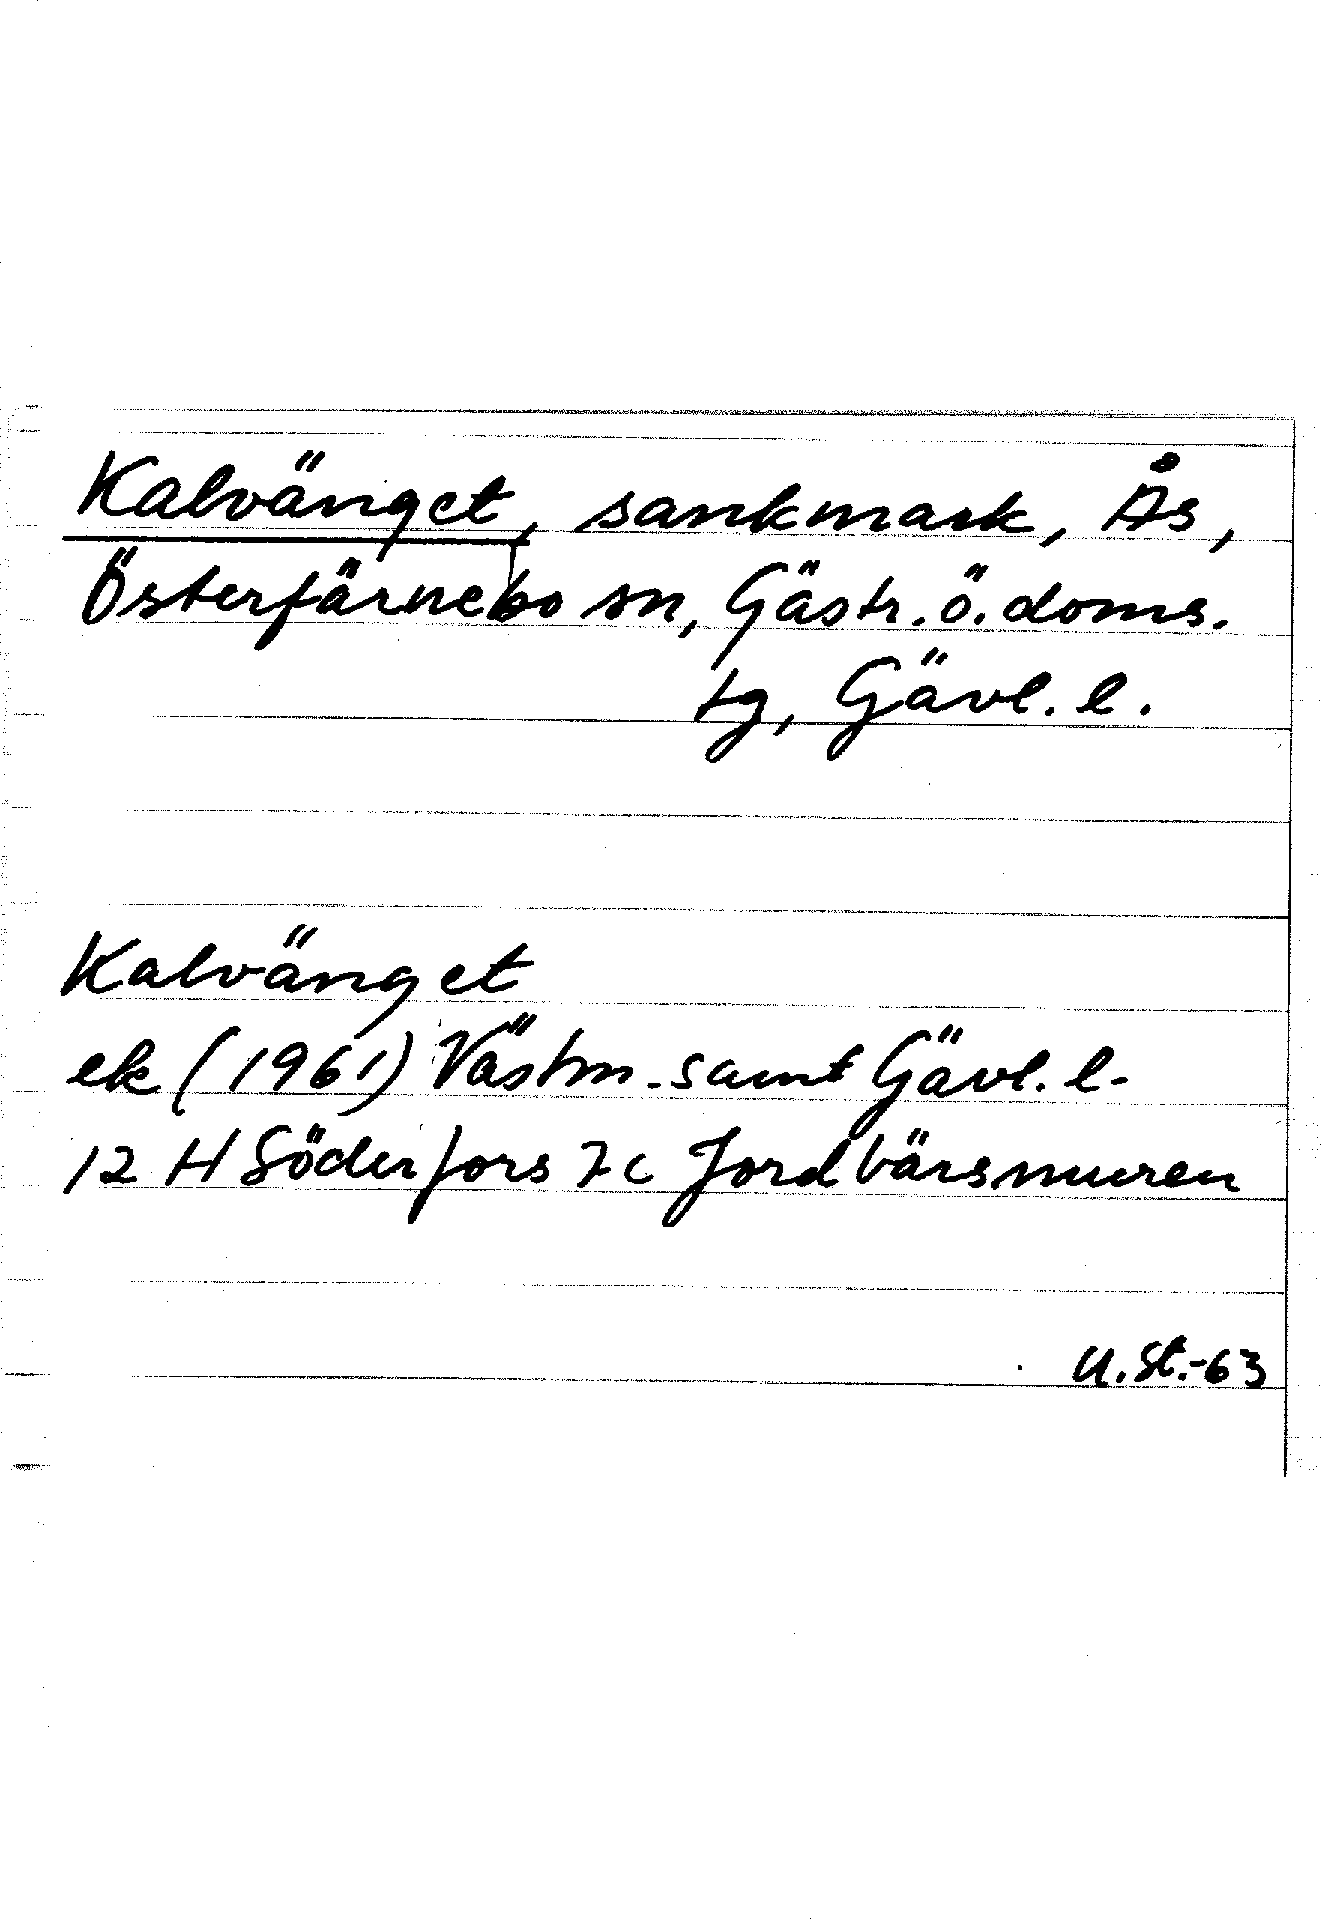 Kalvänget, sankmark, Ås,
Österfärnebo sn, Gästr. ö. doms.
tg, Gävl. l.
Kalvänget
ek (1961) Västm. samt Gävl. l.
12 H Söderfors 7c Jordbärsmuren
U.St.-63